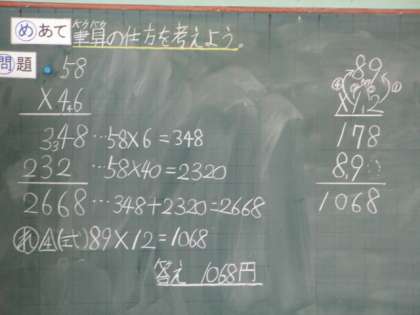 めあて 筆算の仕方を考えよう。
問題
58
×46
348 …58×6=348
232 …58×40=2320
2668 …348+2320=2668
(式)89×12=1068
答え 1068円
89
×12
178
89
1068